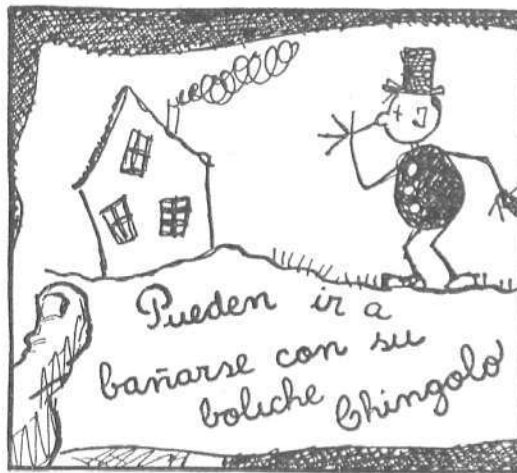 Pueden ir a
bañarse con su
boliche Chingolo